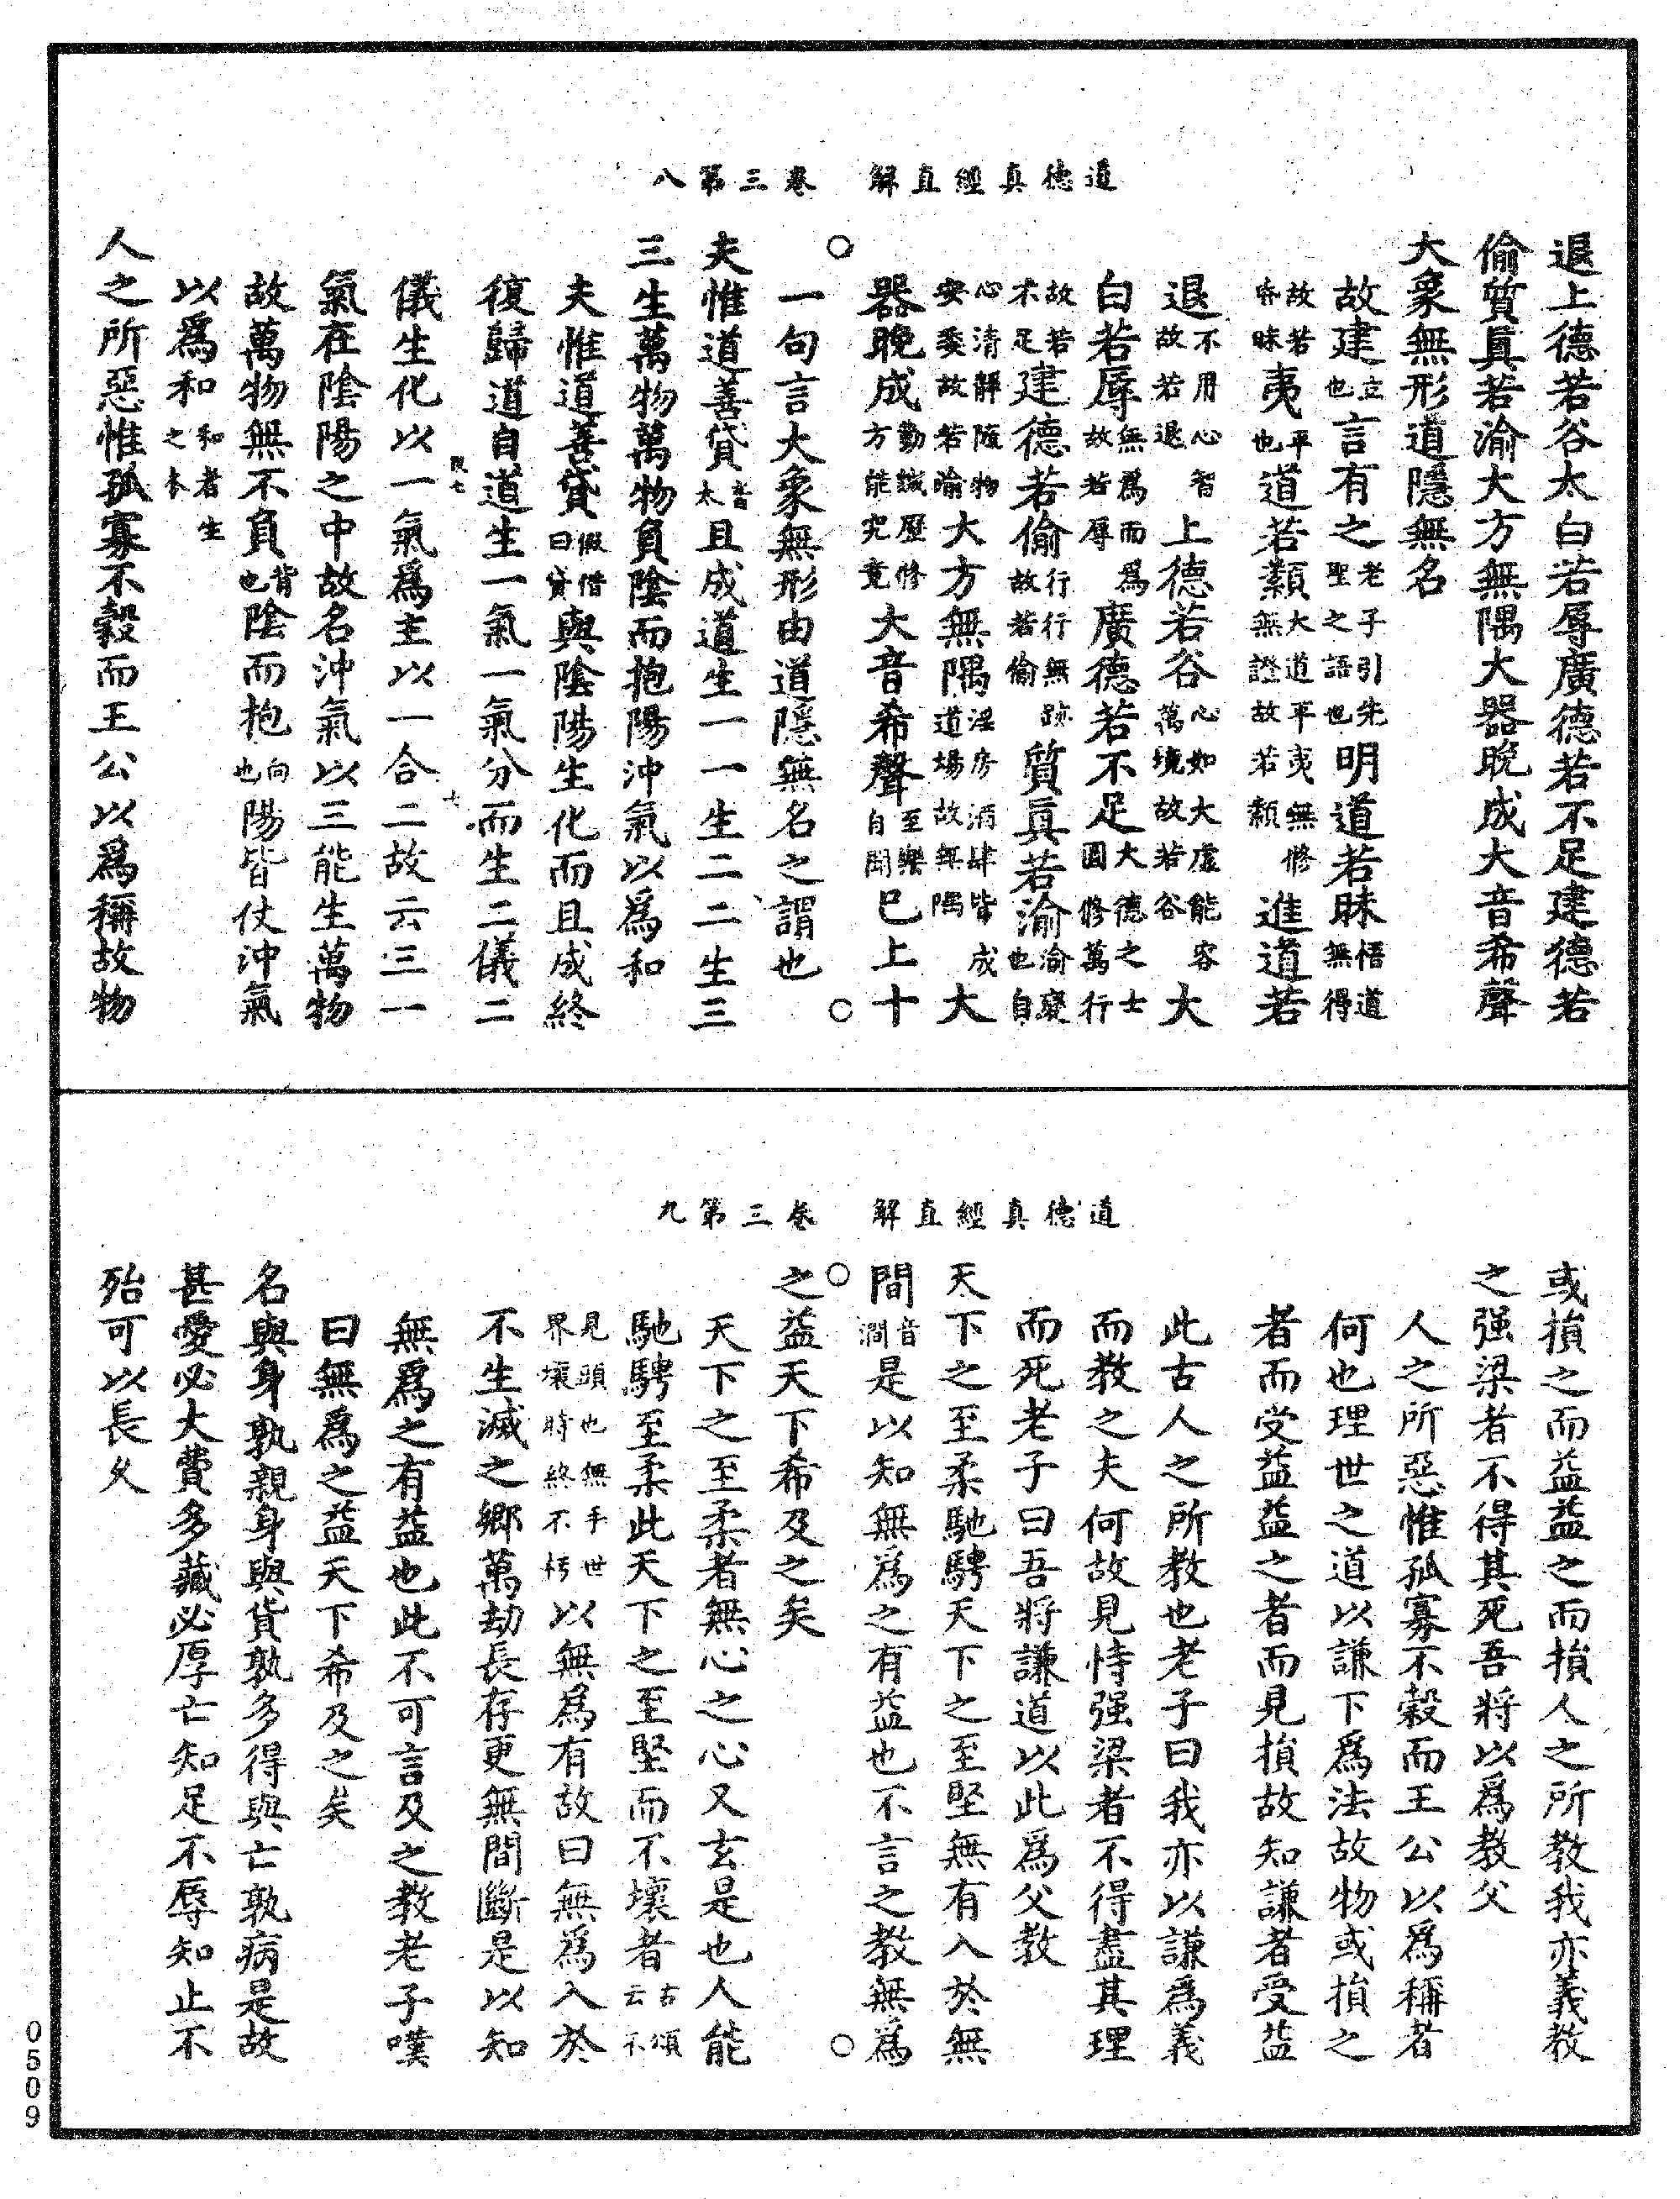 道德真經直解 卷三第八
退上德若谷太白若辱廣德若不足建德若
偷質眞若渝大方無隅大器晚成大音希聲
大象無形道隱無名
故建立也言有之老子引先聖之語也明道若昧悟道無得
故若昏昧夷平也道若纇大道平夷無修無證故若纇進道若
退不用心智故若退上德若谷心如大虛能容萬境故若谷大
白若辱無爲而爲故若辱廣德若不足大德之士圓修萬行
故若不足建德若偷行行無跡故若偷質眞若渝渝變也自
心清靜隨物安委故若渝大方無隅淫房酒肆皆成道場故無隅大
器晚成勤誠歷修方能究竟大音希聲至樂自聞巳上十
一句言大象無形由道隱無名之謂也
夫惟道善貸音太且成道生一一生二二生三
三生萬物萬物負陰而抱陽沖氣以爲和
夫惟道善貸假借曰貸與陰陽生化而且成終
復歸道自道生一氣一氣分而生二儀二
儀生化以一氣爲主以一合二故云三一
氣在陰陽之中故名沖氣以三能生萬物
故萬物無不負背也陰而抱向也陽皆仗沖氣
以爲和和者生之本
人之所惡惟孤寡不穀而王公以爲稱故物
道德真經直解 卷三第九
或損之而益益之而損人之所教我亦義教
之强梁者不得其死吾將以爲教父
人之所惡惟孤寡不穀而王公以爲稱者
何也理世之道以謙下爲法故物或損之
者而受益益之者而見損故知謙者受益
此古人之所教也老子曰我亦以謙爲義
而教之夫何故見恃强梁者不得盡其理
而死老子曰吾將謙道以此爲父教
天下之至柔馳騁天下之至堅無有入於無
間音澗是以知無爲之有益也不言之教無爲
之益天下希及之矣
天下之至柔者無心之心又玄是也人能
馳騁至柔此天下之至堅而不壞者古頌云不
見頭也無手世界壞時終不朽以無爲有故曰無爲入於
不生滅之鄉萬劫長存更無間斷是以知
無爲之有益也此不可言及之教老子嘆
曰無爲之益天下希及之矣
名與身孰親身與貨孰多得與亡孰病是故
甚愛必大費多藏必厚亡知足不辱知止不
殆可以長久
0509